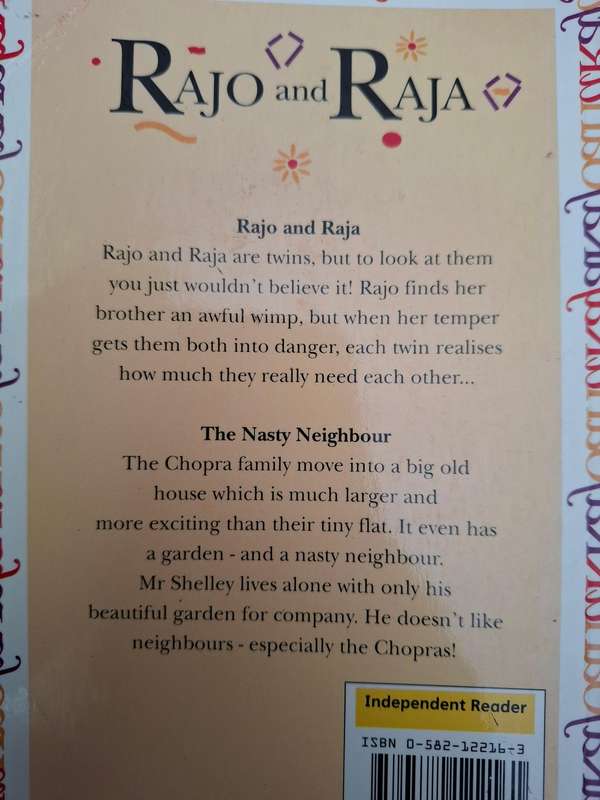 RAJO and RAJA
Rajo and Raja
Rajo and Raja are twins, but to look at them
you just wouldn't believe it! Rajo finds her
brother an awful wimp, but when her temper
gets them both into danger, each twin realises
how much they really need each other...
The Nasty Neighbour
The Chopra family move into a big old
house which is much larger and
more exciting than their tiny flat. It even has
a garden - and a nasty neighbour.
Mr Shelley lives alone with only his
beautiful garden for company. He doesn't like
neighbours - especially the Chopras!
Independent Reader
ISBN 0-582-12216-3